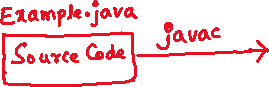 Example.java
Source Code
javac